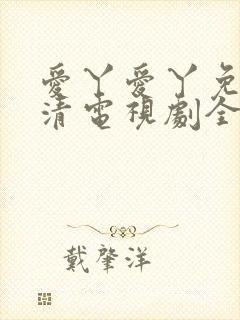 愛丫愛丫免
清電視劇全
戴肇洋